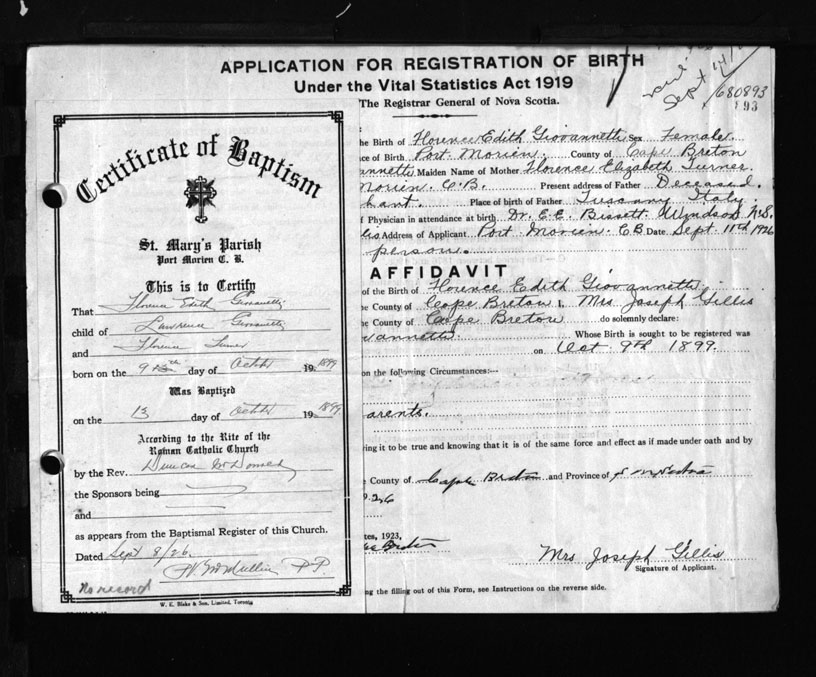 APPLICATION FOR REGISTRATION OF BIRTH
Under the Vital Statistics Act 1919
The Registrar General of Nova Scotia.
Sept 14/
680893
Certificate of Baptism
St. Mary's Parish
Port Morien C. B.
This is to Certify
That Florence Edith Giovannetti
child of Lawrence Giovannetti
and Florence Turner
born on the 9th day of October 19 1899
Was Baptized
on the 13 day of October 19 1899
According to the Rite of the
Roman Catholic Church
by the Rev. Duncan McDonald
the Sponsors being
and
as appears from the Baptismal Register of this Church.
Dated Sept 8/26.
P.P.
No record
W. E. Blake & Son, Limited, Toronto
he Birth of Florence Edith Giovannetti Sex Female.
ce of Birth Port Morien. County of Cape Breton
annetti Maiden Name of Mother Florence Elizabeth Turner.
Morien. C.B. Present address of Father Deceased.
hant. Place of birth of Father Tuscany Italy.
f Physician in attendance at birth Dr. E.E. Bissett. Windsor N.S.
lis Address of Applicant Port Morien. C.B. Date Sept. 11th 1926
person.
AFFIDAVIT
of the Birth of Florence Edith Giovannetti
e County of Cape Breton I, Mrs Joseph Gillis
e County of Cape Breton do solemnly declare:
vannetti Whose Birth is sought to be registered was
on Oct 9th 1899.
on the following Circumstances:—
arents.
ving it to be true and knowing that it is of the same force and effect as if made under oath and by
e County of Cape Breton and Province of
9.26
tes, 1923,
Mrs Joseph Gillis
Signature of Applicant.
ng the filling out of this Form, see Instructions on the reverse side.